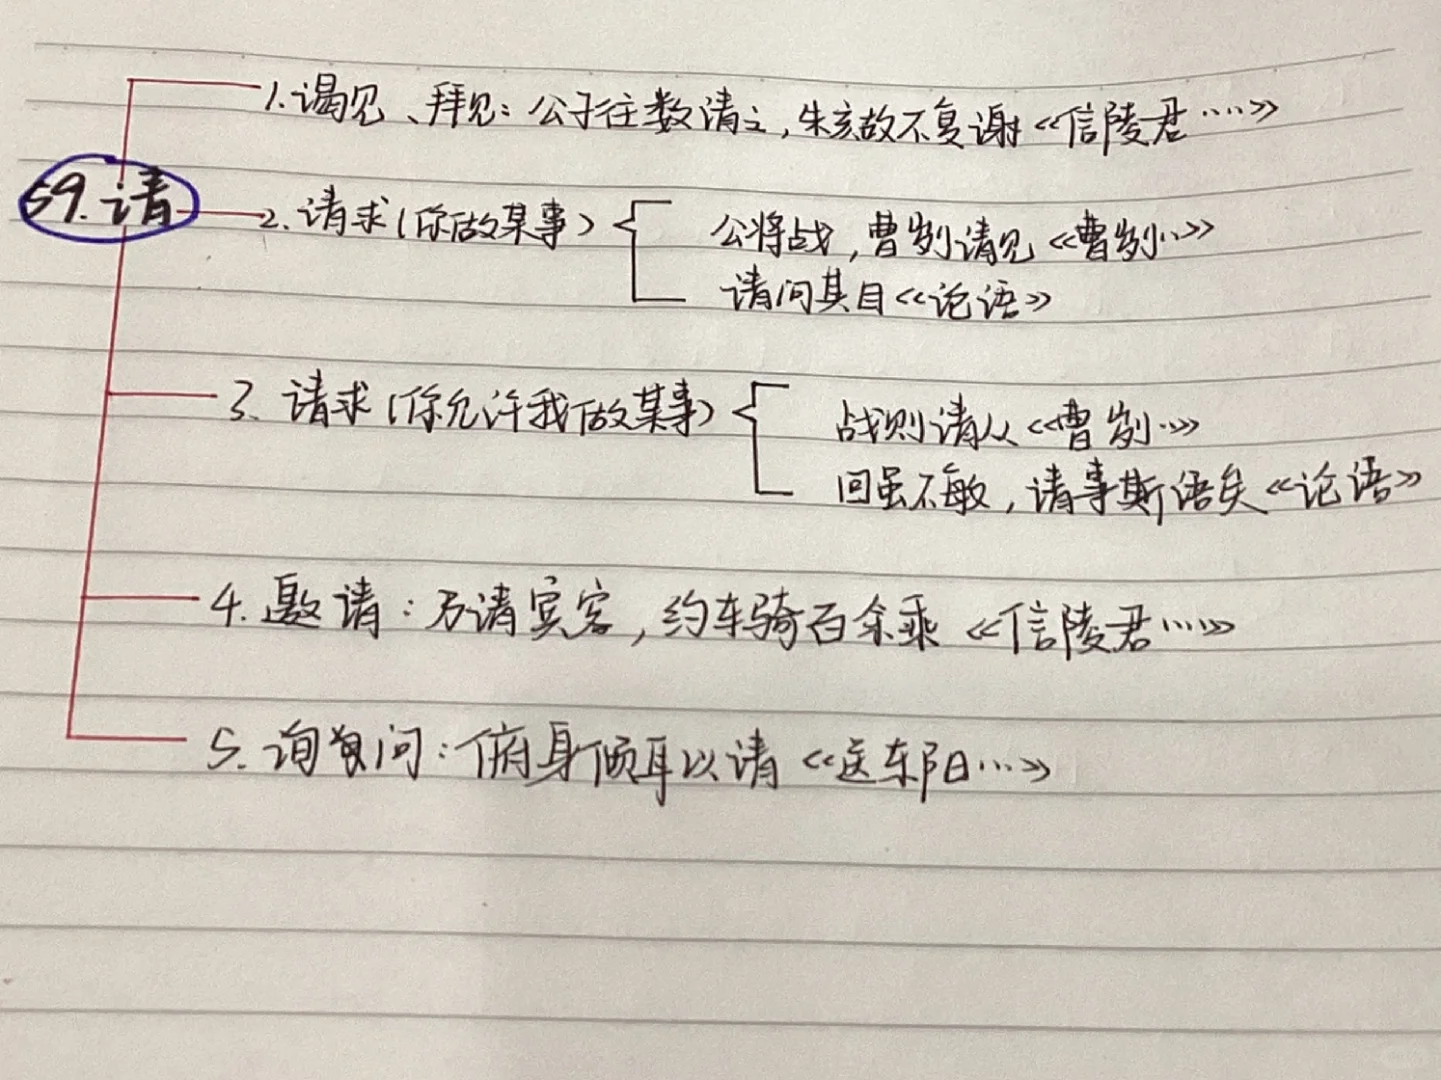 1.谒见、拜见：公子往数请之，朱亥故不复谢《信陵君……》
59.请
2.请求（你做某事） 公将战，曹刿请见《曹刿…》
请问其目《论语》
3.请求（你允许我做某事） 战则请从《曹刿…》
回虽不敏，请事斯语矣《论语》
4.邀请：方请宾客，约车骑百余乘《信陵君……》
5.询问：俯身倾耳以请《送东阳…》